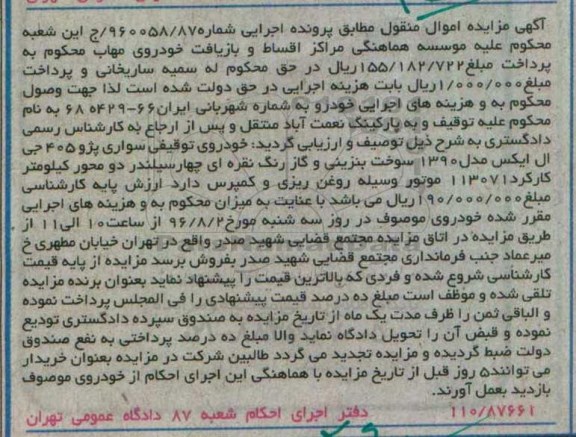 آگهی مزایده اموال منقول مطابق پرونده اجرایی شماره۹۶۰۰۵۸/۸۷/ج این شعبه
محکوم علیه موسسه هماهنگی مراکز اقساط و بازیافت خودروی مهاب محکوم به
پرداخت مبلغ۱۵۵/۱۸۲/۷۲۲ریال در حق محکوم له سمیه ساریخانی و پرداخت
مبلغ۱/۰۰۰/۰۰۰ریال بابت هزینه اجرایی در حق دولت شده است لذا جهت وصول
محکوم به و هزینه های اجرایی خودرو به شماره شهربانی ایران۶۶-۴۲۹ه ۶۸ به نام
محکوم علیه توقیف و به پارکینگ نعمت آباد منتقل و پس از ارجاع به کارشناس رسمی
دادگستری به شرح ذیل توصیف و ارزیابی گردید: خودروی توقیفی سواری پژو۴۰۵ جی
ال ایکس مدل۱۳۹۰ سوخت بنزینی و گاز رنگ نقره ای چهارسیلندر دو محور کیلومتر
کارکرد۱۱۳۰۷۱ موتور وسیله روغن ریزی و کمپرس دارد ارزش پایه کارشناسی
مبلغ۱۹۰/۰۰۰/۰۰۰ریال می باشد با عنایت به میزان محکوم به و هزینه های اجرایی
مقرر شده خودروی موصوف در روز سه شنبه مورخ۹۶/۸/۲ از ساعت۱۰ الی۱۱ از
طریق مزایده در اتاق مزایده مجتمع قضایی شهید صدر واقع در تهران خیابان مطهری خ
میرعماد جنب فرمانداری مجتمع قضایی شهید صدر بفروش برسد مزایده از پایه قیمت
کارشناسی شروع شده و فردی که بالاترین قیمت را پیشنهاد نماید بعنوان برنده مزایده
تلقی شده و موظف است مبلغ ده درصد قیمت پیشنهادی را فی المجلس پرداخت نموده
و الباقی ثمن را ظرف مدت یک ماه از تاریخ مزایده به صندوق سپرده دادگستری تودیع
نموده و قبض آن را تحویل دادگاه نماید والا مبلغ ده درصد پرداختی به نفع صندوق
دولت ضبط گردیده و مزایده تجدید می گردد طالبین شرکت در مزایده بعنوان خریدار
می توانند۵ روز قبل از تاریخ مزایده با هماهنگی این اجرای احکام از خودروی موصوف
بازدید بعمل آورند.
۱۱۰/۸۷۶۶۱ دفتر اجرای احکام شعبه ۸۷ دادگاه عمومی تهران